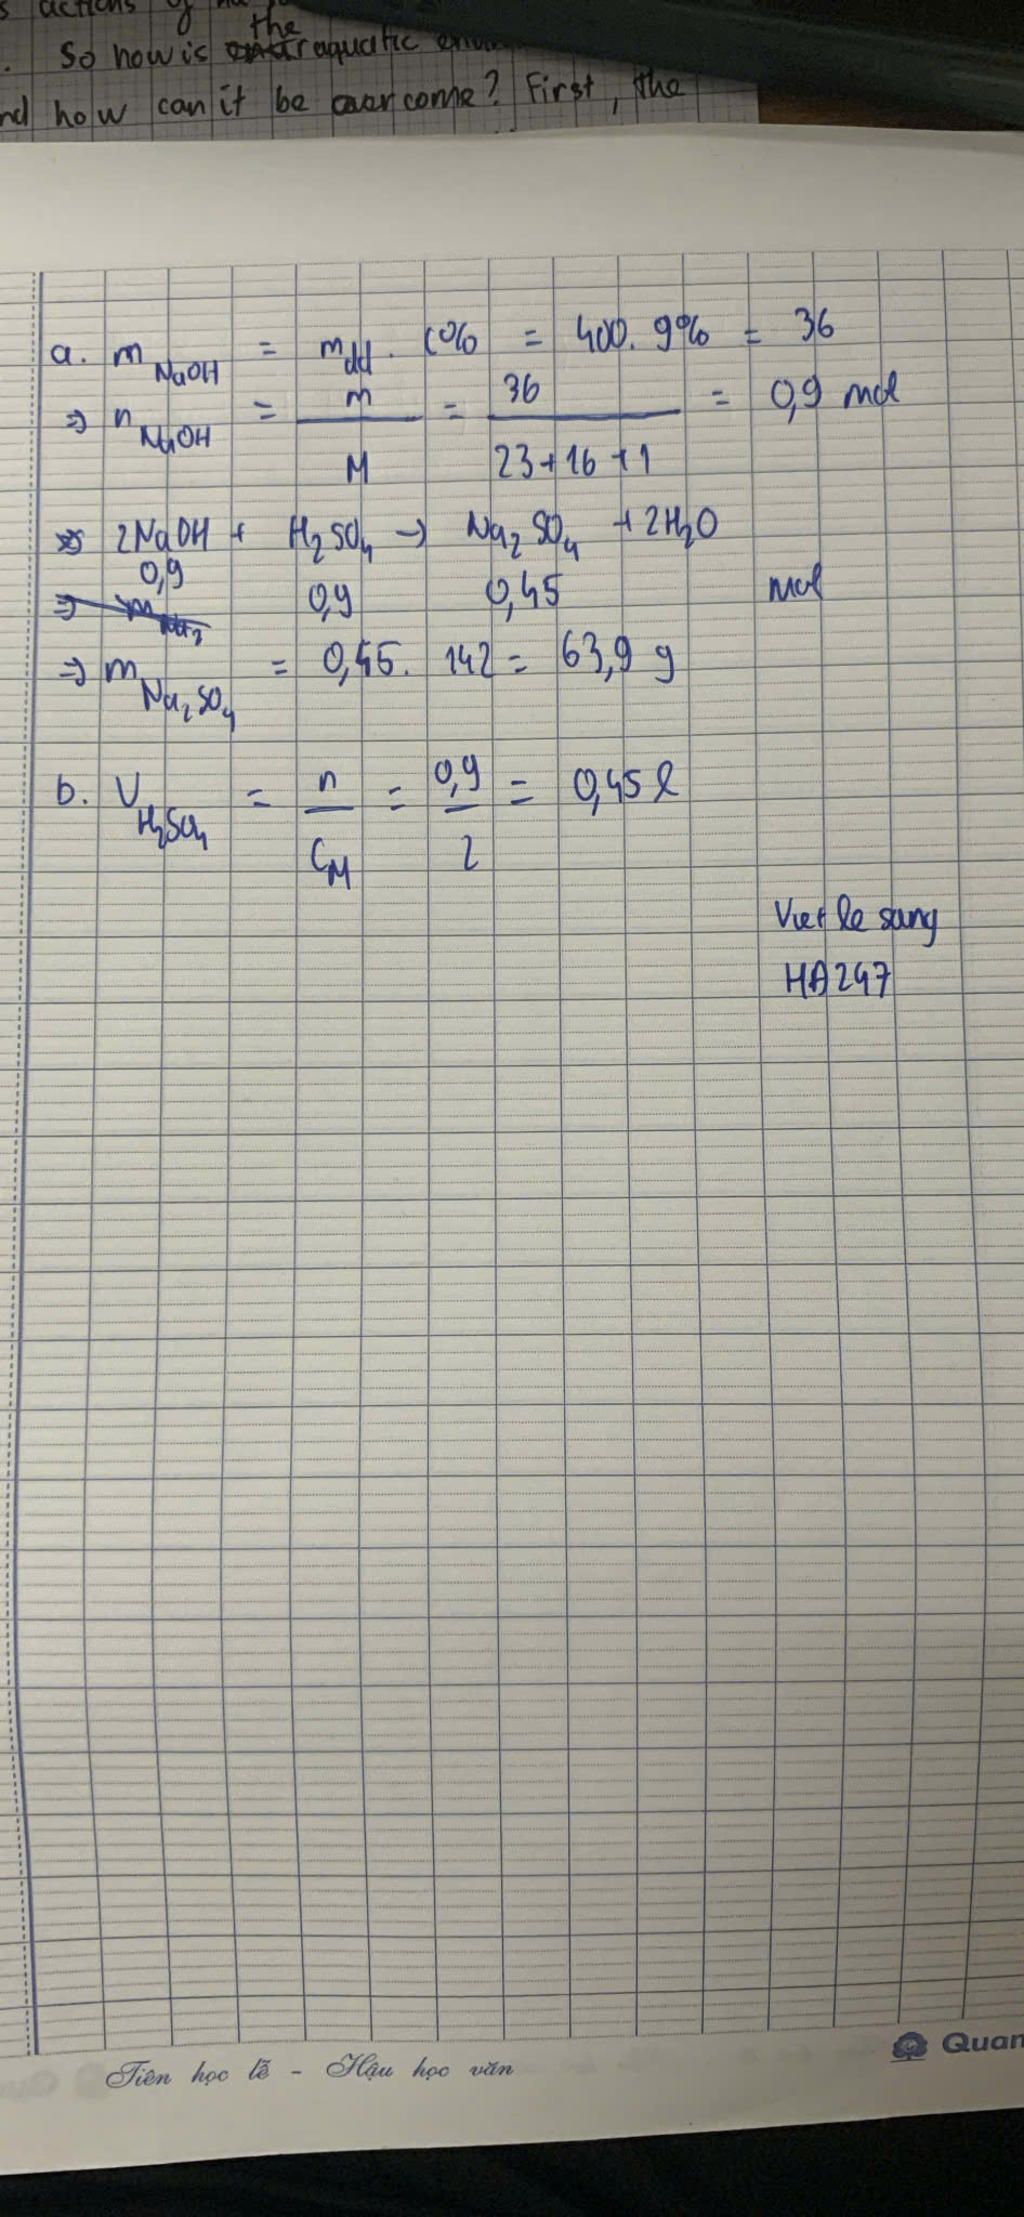 s actions of
the
. So how is aquatic
nd how can it be overcome? First, the
a. m NaOH = mdd . C% = 400. 9% = 36
=> n NaOH = m / M = 36 / 23+16+1 = 0,9 mol
2NaOH + H2SO4 -> Na2SO4 + 2H2O
0,9 0,9 0,45 mol
=> m Na2SO4 = 0,45. 142 = 63,9 g
b. V H2SO4 = n / CM = 0,9 / 2 = 0,45 l
Viet le sang
HA247
Tiên học lễ - Hậu học văn
Quan